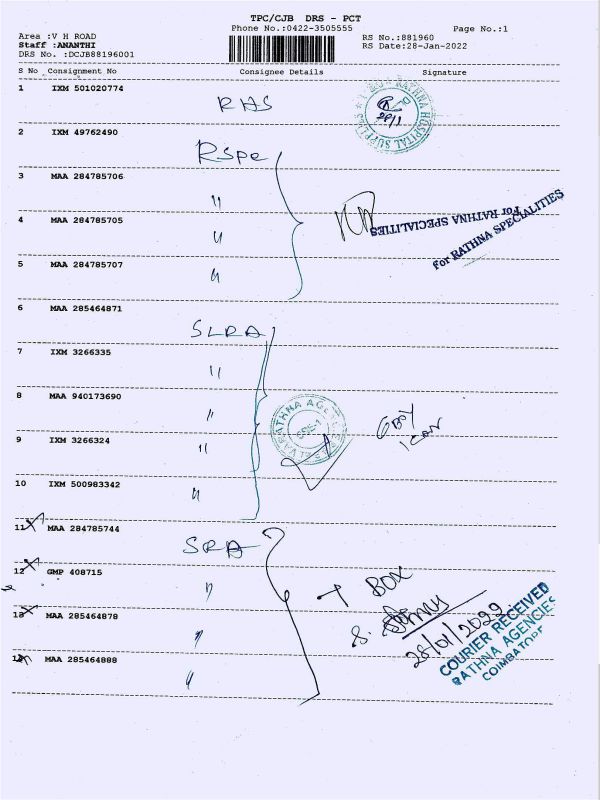 TPC/CJB DRS - PCT
Phone No.:0422-3505555
Page No.:1
Area :V H ROAD
RS No.:881960
Staff :ANANTHI
RS Date:28-Jan-2022
DRS No. :DCJB88196001
S No Consignment No Consignee Details Signature
1 IXM 501020774
RHS
RATHNA HOSPITAL SUPPLIES
28/1
2 IXM 49762490
RSpe
3 MAA 284785706
"
for RATHNA SPECIALITIES
for RATHNA SPECIALITIES
4 MAA 284785705
"
5 MAA 284785707
"
6 MAA 285464871
SLRA
7 IXM 3266335
"
8 MAA 940173690
"
RATHNA AGENCIES
CBE-1
9 IXM 3266324
"
10 IXM 500983342
"
11 MAA 284785744
SRA
12 GMP 408715
"
Box
13 MAA 285464878
"
28/01/2022
COURIER RECEIVED
RATHNA AGENCIES
COIMBATORE
14 MAA 285464888
"